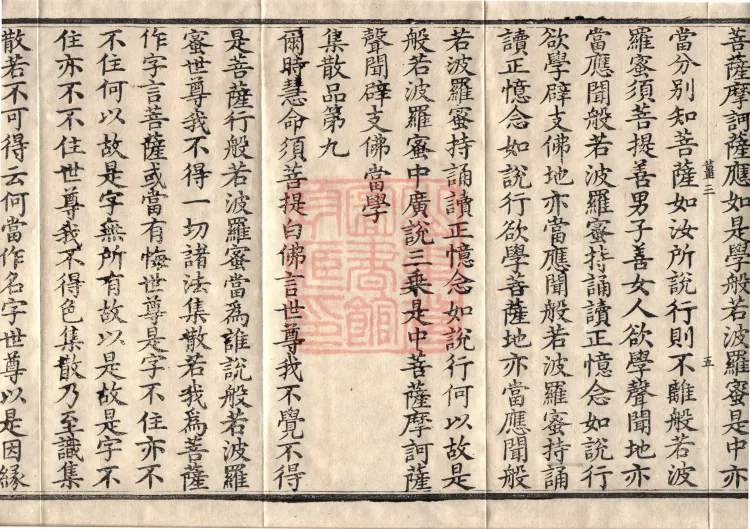 菩薩摩訶薩應如是學般若波羅蜜是中亦
當分別知菩薩如汝所說行則不離般若波
羅蜜須菩提善男子善女人欲學聲聞地亦
當應聞般若波羅蜜持誦讀正憶念如說行
欲學辟支佛地亦當應聞般若波羅蜜持誦
讀正憶念如說行欲學菩薩地亦當應聞般
若波羅蜜持誦讀正憶念如說行何以故是
般若波羅蜜中廣說三乘是中菩薩摩訶薩
聲聞辟支佛當學
集散品第九
爾時慧命須菩提白佛言世尊我不覺不得
是菩薩行般若波羅蜜當為誰說般若波羅
蜜世尊我不得一切諸法集散若我為菩薩
作字言菩薩或當有悔世尊是字不住亦不
不住何以故是字無所有故以是故是字不
住亦不不住世尊我不得色集散乃至識集
散若不可得云何當作名字世尊以是因緣
三
五